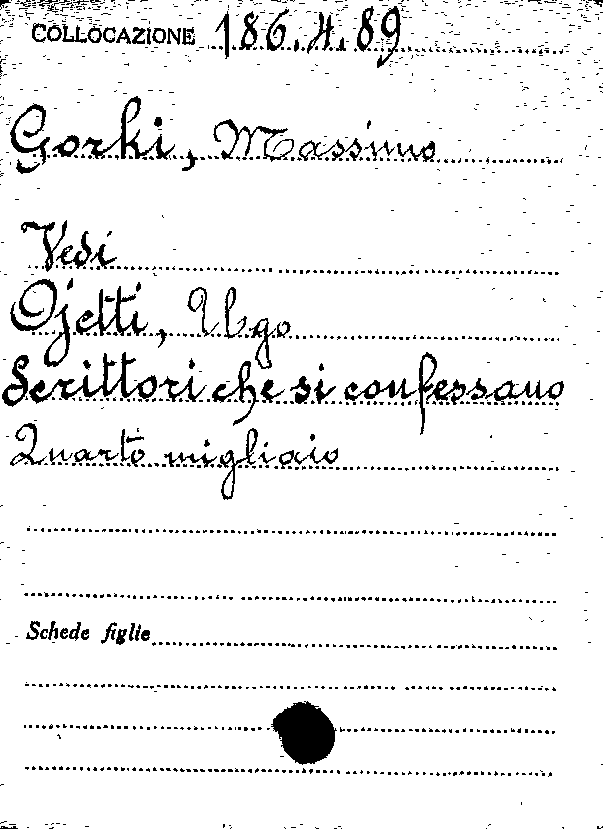 COLLOCAZIONE 186.4.89
Gorki, Massimo
Vedi
Ojetti, Ugo
Scrittori che si confessano
Quarto migliaio
Schede figlie